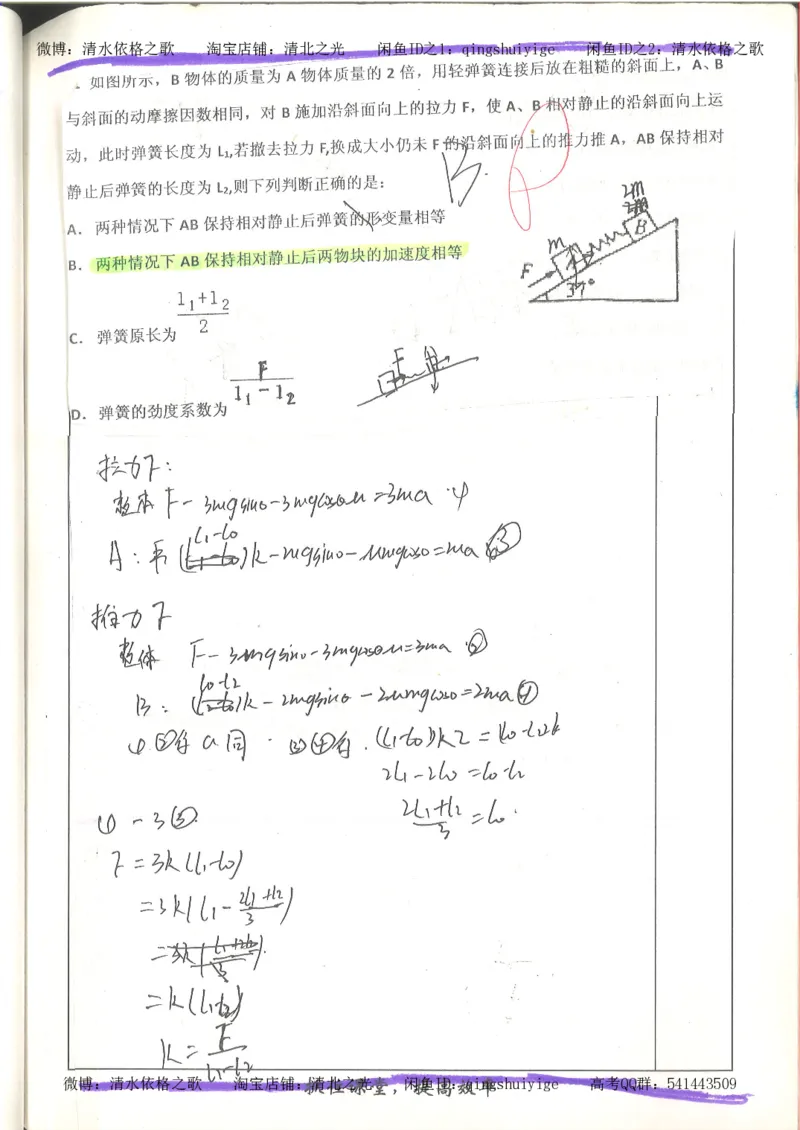 微博：清水依格之歌 淘宝店铺：清北之光 闲鱼ID之1：qingshuiyige 闲鱼ID之2：清水依格之歌
如图所示，B 物体的质量为 A 物体质量的 2 倍，用轻弹簧连接后放在粗糙的斜面上，A、B
与斜面的动摩擦因数相同，对 B 施加沿斜面向上的拉力 F，使 A、B 相对静止的沿斜面向上运
动，此时弹簧长度为 L₁,若撤去拉力 F,换成大小仍未 F 的沿斜面向上的推力推 A，AB 保持相对
静止后弹簧的长度为 L₂,则下列判断正确的是：
B.
A. 两种情况下 AB 保持相对静止后弹簧的形变量相等
B. 两种情况下 AB 保持相对静止后两物块的加速度相等
2m
B
m
F
37°
C. 弹簧原长为 (l₁+l₂)/2
F
D. 弹簧的劲度系数为 F/(l₁-l₂)
拉力F：
整体 F-3mgsinθ-3mgcosθμ=3ma ①
A：(L₁-L₀)k-mgsinθ-μmgcosθ=ma ③
推力F
整体 F-3mgsinθ-3mgcosθμ=3ma ②
B：(L₀-L₂)k-2mgsinθ-2μmgcosθ=2ma ④
①②有 a同 ③④有. (L₁-L₀)k2=(L₀-L₂)k
2L₁-2L₀=L₀-L₂
(2L₁+L₂)/3=L₀
①-3③
F=3k(L₁-L₀)
=3k(L₁-(2L₁+L₂)/3)
=k(L₁-L₂)
k=F/(L₁-L₂)
微博：清水依格之歌 淘宝店铺：清北之光 闲鱼ID：qingshuiyige 高考QQ群：541443509
抓住课堂，提高效率